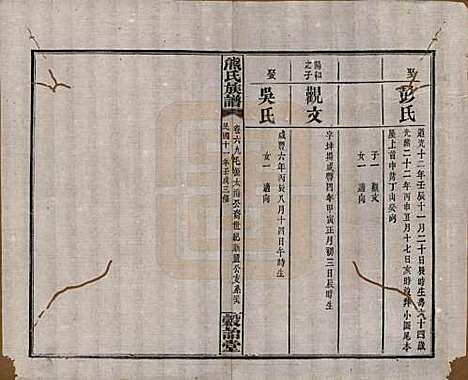 娶
彭氏
道光十二年壬辰十一月二十日辰時生壽六十四歲
光緒二十二年丙申五月十七日亥時歿葬小園尾本
屋上首申節丁山癸向
子一 觀文
女一 適向
陽和之子
觀文
字坤揚咸豐四年甲寅正月初三日辰時生
娶
吳氏
咸豐六年丙辰八月十四日午時生
女一 適向
熊氏族譜
卷六
公裔世紀
公支系
民國十一年壬戌三修
穀詒堂